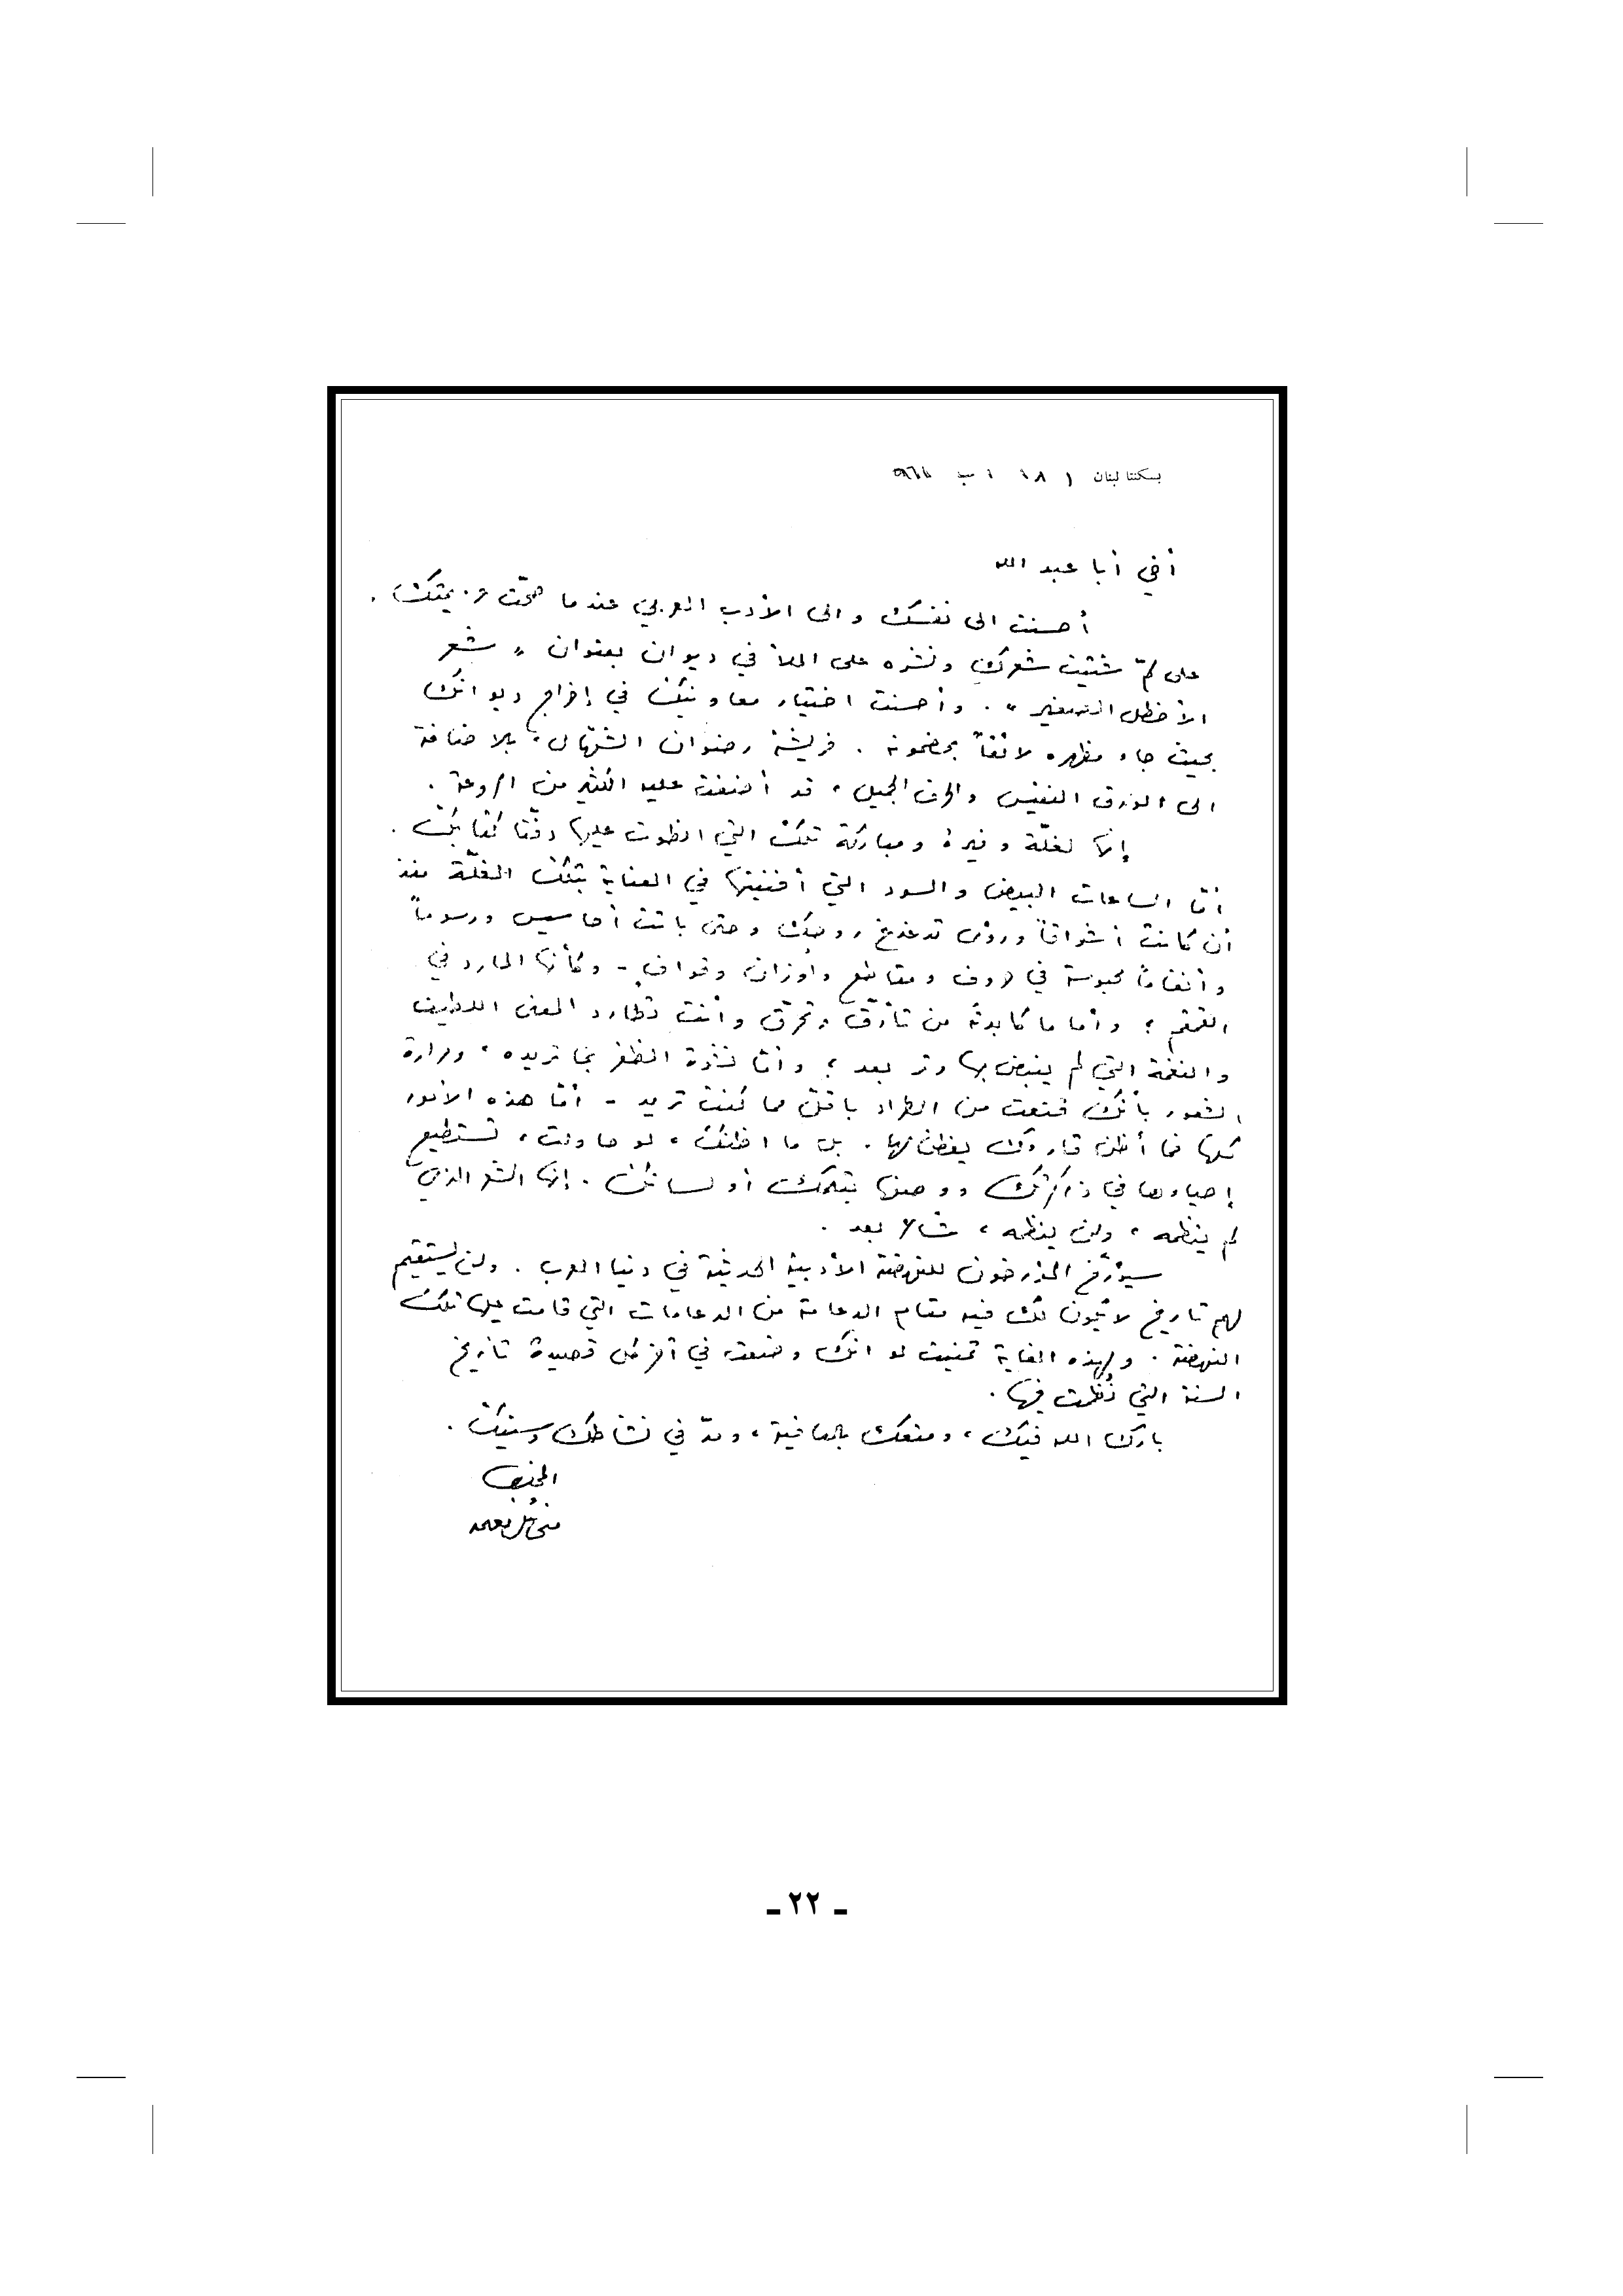 بسكنتا لبنان ١٨ آب
أخي أبا عبد الله
أحسنت الى نفسك والى الأدب العربي عندما صحّت عزيمتك
على لمّ شتيت شعرك ونشره على الملأ في ديوان بعنوان « شعر
الأخطل الصغير » . وأحسنت اختيار معاونيك في إخراج ديوانك
بحيث جاء مظهره لائقاً بمضمونه . فريشة رضوان الشهّال ، بالاضافة
الى الورق النفيس والحرف الجميل ، قد أضفت عليه الكثير من الروعة .
إنها لغلّة وفيرة ومباركة تلك التي انطوت عليها دفّتا كتابك .
أمّا الساعات البيض والسود التي أفنيتها في العناية بتلك الغلّة منذ
أن كانت أشواقاً ورؤى تدغدغ روحك وحتى باتت أحاسيس ورسوماً
وأنغاماً محبوسة في حروف ومقاطع وأوزان وقوافٍ - وكأنها المارد في
القمقم ؛ وأما ما كابدته من تأرّق وتحرّق وأنت تطارد المعنى اللطيف
والنغمة التي لم ينبض بها وتر بعد ؛ وأمّا نشوة الظفر بما تريده ، ومرارة
الشعور بأنك قنعت من الطراد بأقلّ مما كنت تريد - أمّا هذه الأمور
كلها فما أظن قارئك يفطن لها . بل ما اظنك ، لو حاولت ، تستطيع
إحياءها في ذاكرتك ووصفها بقلمك أو لسانك . إنها الشعر الذي
لم ينظمه ، ولن ينظمه ، شاعر بعد .
سيؤرّخ المؤرخون للنهضة الأدبية الحديثة في دنيا العرب . ولن يستقيم
لهم تاريخ لا يكون لك فيه مقام الدعامة من الدعامات التي قامت عليها تلك
النهضة . ولهذه الغاية تمنيت لو انك وضعت في آخر كل قصيدة تاريخ
السنة التي نُظمت فيها .
بارك الله فيك ، ومتعك بالعافية ، ومدّ في نشاطك وسنيك .
المخلص
ميخائيل نعيمه
ـ ٢٢ ـ